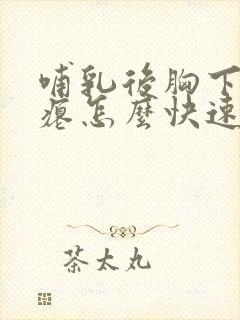 哺乳後胸下
瘪怎麼快速
茶太丸